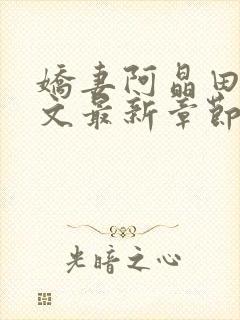 嬌妻阿晶田
文最新章節
光暗之心